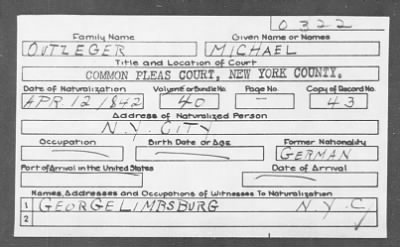 O 322
Family Name Given Name or Names
OUTZEGER MICHAEL
Title and Location of Court
COMMON PLEAS COURT, NEW YORK COUNTY.
Date of Naturalization Volume or Bundle No. Page No. Copy of Record No.
APR. 12 1842 40 — 43
Address of Naturalized Person
N.Y. CITY
Occupation Birth Date or Age Former Nationality
GERMAN
Port of Arrival in the United States Date of Arrival
Names, Addresses and Occupations of Witnesses To Naturalization
1 GEORGE LIMBSBURG N.Y.C.
2